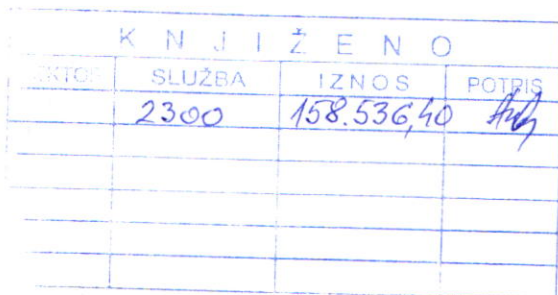 KNJIŽENO
SEKTOR SLUŽBA IZNOS POTPIS
2300 158.536,40